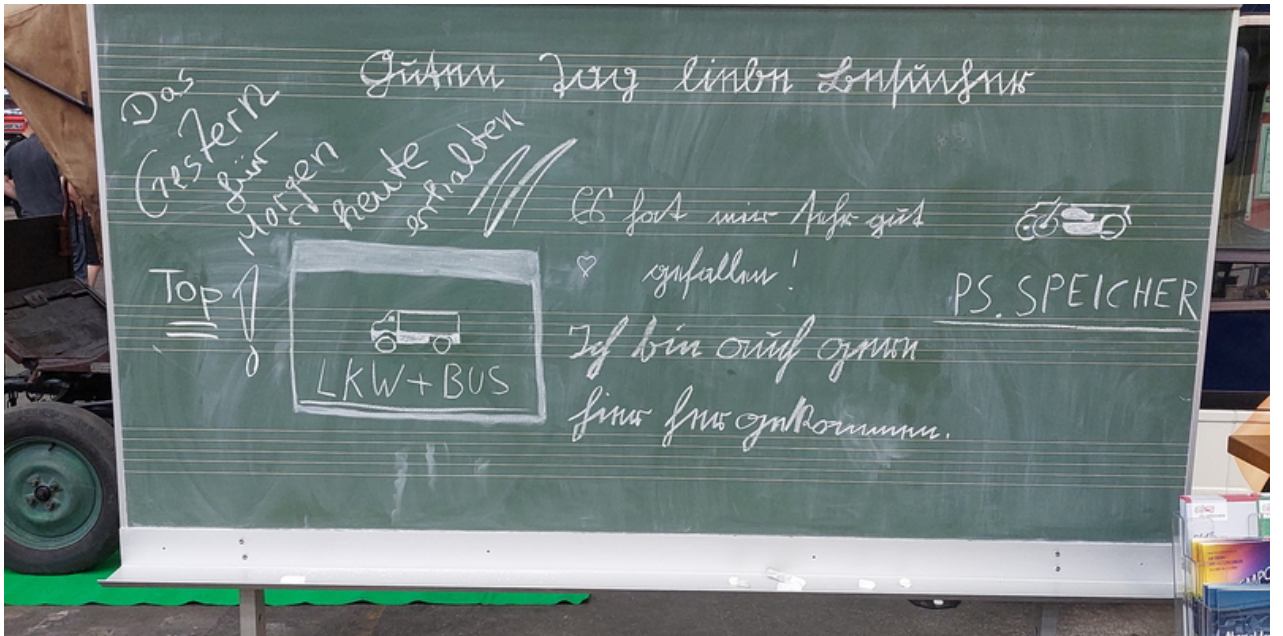 Guten Tag liebe Besucher
Das
Gestern
für
Morgen
heute
erhalten
Top!
LKW+BUS
Es hat mir sehr gut
gefallen!
Ich bin auch gern
hier her gekommen.
PS. SPEICHER